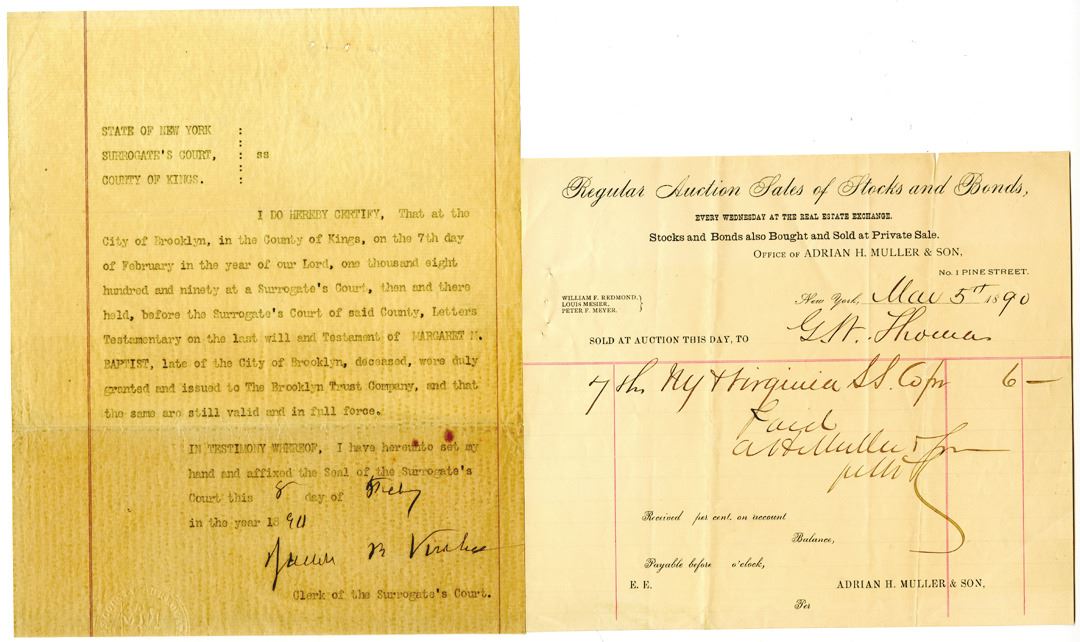 STATE OF NEW YORK :
SURROGATE'S COURT, : ss
COUNTY OF KINGS. :
I DO HEREBY CERTIFY, That at the
City of Brooklyn, in the County of Kings, on the 7th day
of February in the year of our Lord, one thousand eight
hundred and ninety at a Surrogate's Court, then and there
held, before the Surrogate's Court of said County, Letters
Testamentary on the last will and Testament of MARGARET M.
BAPTIST, late of the City of Brooklyn, deceased, were duly
granted and issued to The Brooklyn Trust Company, and that
the same are still valid and in full force.
IN TESTIMONY WHEREOF, I have hereunto set my
hand and affixed the Seal of the Surrogate's
Court this 8 day of Feby
in the year 18 90
Clerk of the Surrogate's Court.
Regular Auction Sales of Stocks and Bonds,
EVERY WEDNESDAY AT THE REAL ESTATE EXCHANGE.
Stocks and Bonds also Bought and Sold at Private Sale.
OFFICE OF ADRIAN H. MULLER & SON,
No. 1 PINE STREET.
WILLIAM F. REDMOND,
LOUIS MESIER,
PETER F. MEYER.
New York, Mar 5th 1890
SOLD AT AUCTION THIS DAY, TO G W. Thomas
7 Shs NY & Virginia S.S. Co 6 —
Paid
A H Muller & Son
Received per cent. on account
Balance,
Payable before o'clock,
E. E. ADRIAN H. MULLER & SON,
Per